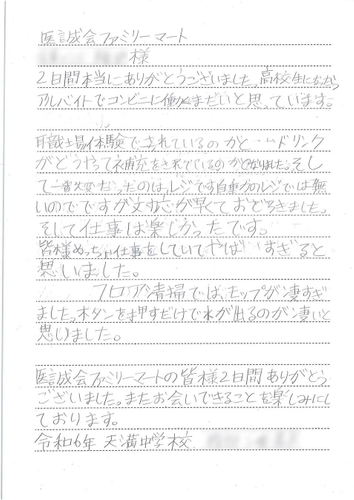 医誠会ファミリーマート
様
2日間本当にありがとうございました。高校生になったら
アルバイトでコンビニに働きたいと思っています。
職場体験でされているのかと…ドリンク
がどうやって補充をされているのかとなりました。そし
て一番大変だったのはレジです自動のレジでは無
いのでですが丈夫が早くておどろきました。
そして仕事は楽しかったです。
皆様めっちゃ仕事をしていてやばいすぎると
思いました。
フロア清掃では、モップが凄すぎ
ました。ボタンを押すだけで水が出るのが凄いと
思いました。
医誠会ファミリーマートの皆様2日間ありがとう
ございました。またお会いできることを楽しみにし
ております。
令和6年 天満中学校